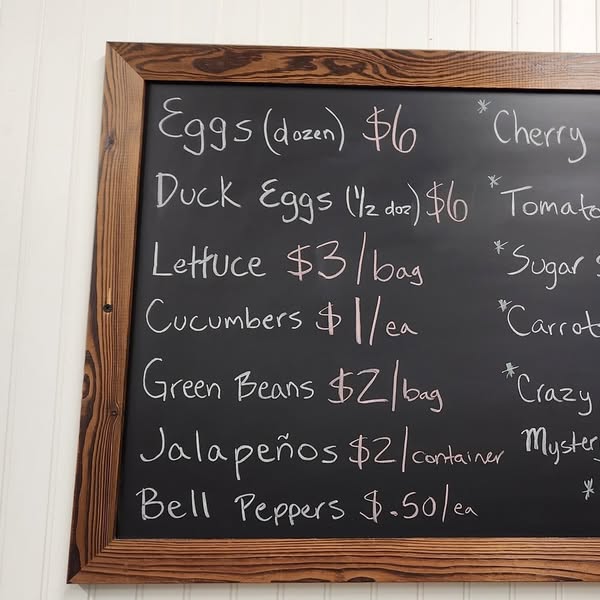 Eggs (dozen) $6
Duck Eggs (1/2 doz) $6
Lettuce $3/bag
Cucumbers $1/ea
Green Beans $2/bag
Jalapeños $2/container
Bell Peppers $.50/ea
* Cherry
* Tomato
* Sugar
* Carrot
* Crazy
Myster
*